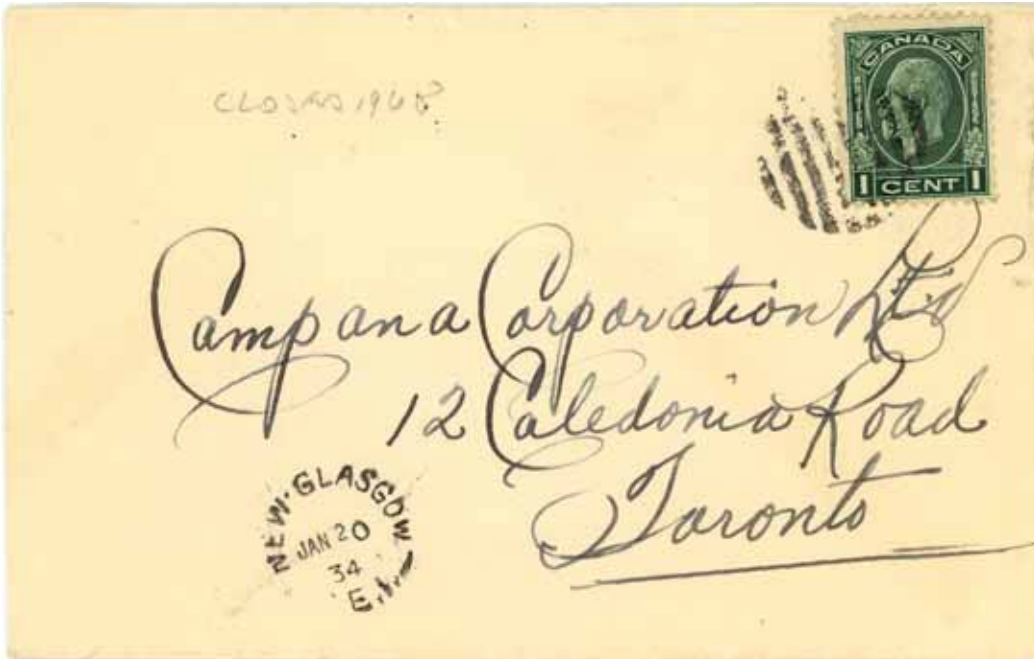 CLOSED 1968
CANADA
1 CENT 1
Campana Corporation Ltd
12 Caledonia Road
Toronto
NEW·GLASGOW
JAN 20
34